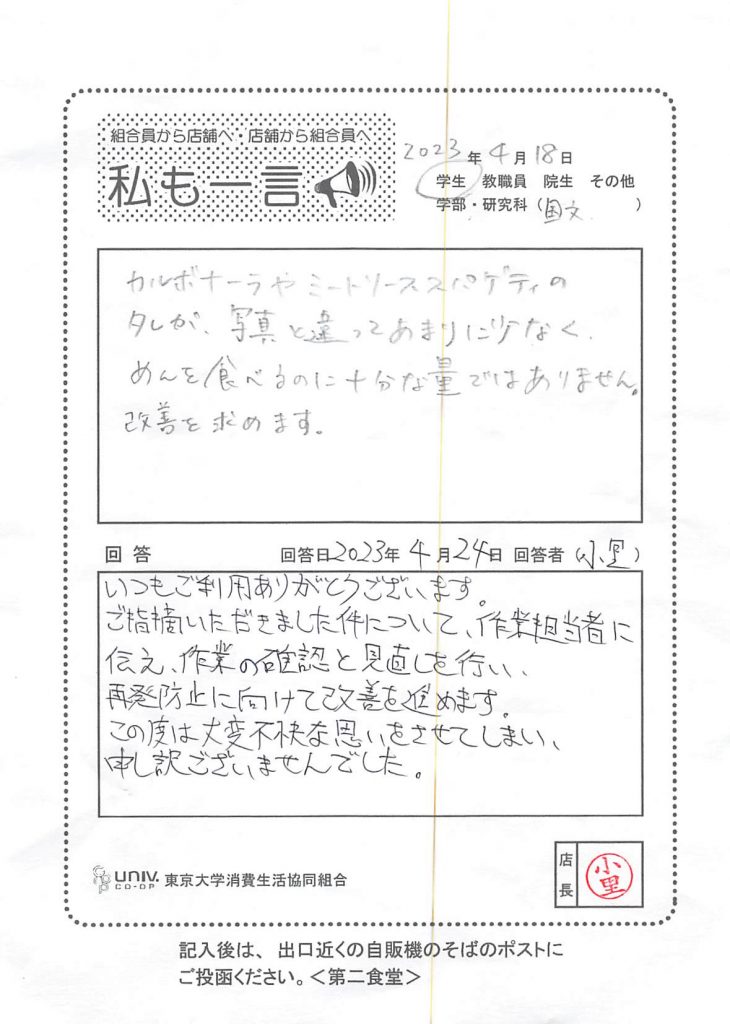 組合員から店舗へ 店舗から組合員へ
私も一言
2023年 4月 18日
学生 教職員 院生 その他
学部・研究科（国文 ）
カルボナーラやミートソーススパゲティの
タレが、写真と違ってあまりに少なく、
めんを食べるのに十分な量ではありません。
改善を求めます。
回答 回答日2023年 4月24日 回答者（小里）
いつもご利用ありがとうございます。
ご指摘いただきました件について、作業担当者に
伝え、作業の確認と見直しを行い、
再発防止に向けて改善を進めます。
この度は大変不快な思いをさせてしまい、
申し訳ございませんでした。
coop UNIV. CO-OP 東京大学消費生活協同組合
店長 小里
記入後は、出口近くの自販機のそばのポストに
ご投函ください。＜第二食堂＞